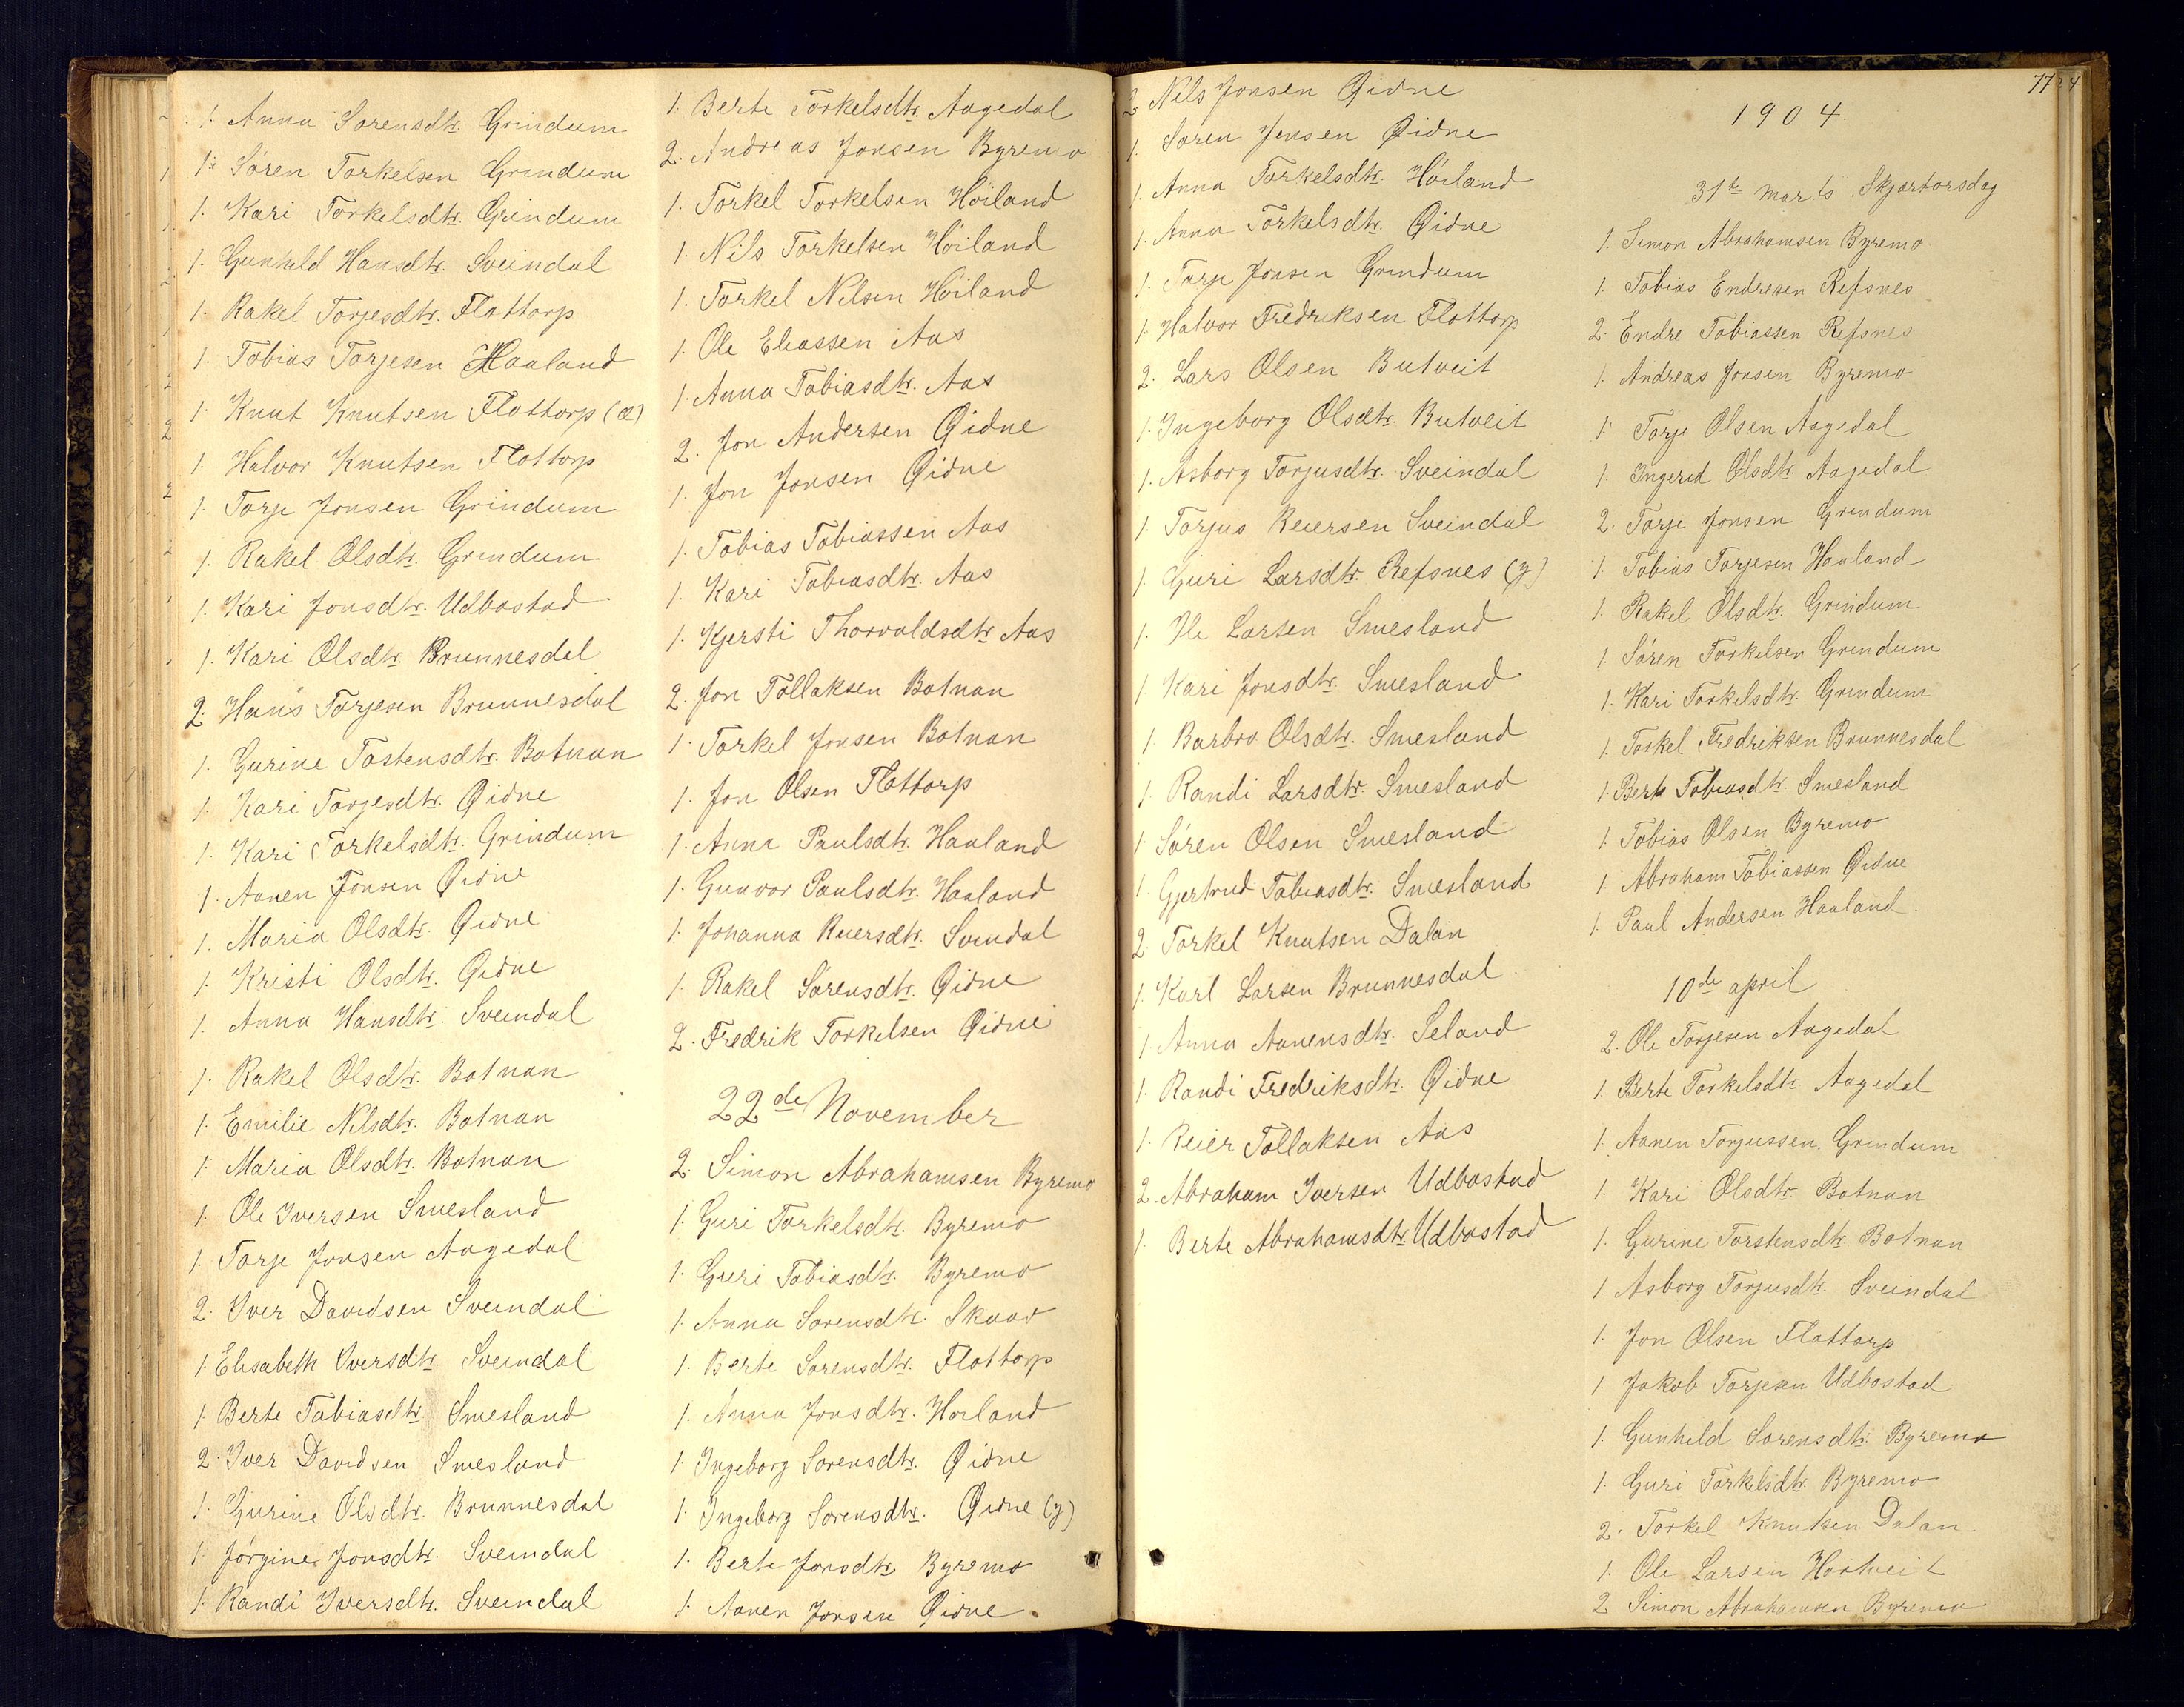 1. Anna Sørensdtr. Grindum
1. Søren Torkelsen Grindum
1. Kari Torkelsdtr. Grindum
1. Gunhild Hansdtr. Sveindal
1. Rakel Torjesdtr. Flottorp
1. Tobias Torjesen Haaland
1. Knut Knutsen Flottorp (æ)
1. Halvor Knutsen Flottorp
1. Torje Jonsen Grindum
1. Rakel Olsdtr. Grindum
1. Kari Jonsdtr. Udbostad
1. Kari Olsdtr. Brunnesdal
2. Hans Torjesen Brunnesdal
1. Gurine Tostensdtr. Botnan
1. Kari Torjesdtr. Øidne
1. Kari Torkelsdtr. Grindum
1. Aanen Jonsen Øidne
1. Maria Olsdtr. Øidne
1. Kristi Olsdtr. Øidne
1. Anna Hansdtr. Sveindal
1. Rakel Olsdtr. Botnan
1. Emilie Nilsdtr. Botnan
1. Maria Olsdtr. Botnan
1. Ole Iversen Smesland
1. Torje Jonsen Aagedal
2. Iver Davidsen Sveindal
1. Elisabeth Iversdtr. Sveindal
1. Berte Tobiasdtr. Smesland
2. Iver Davidsen Smesland
1. Gurine Olsdtr. Brunnesdal
1. Jørgine Jonsdtr. Sveindal
1. Randi Iversdtr. Sveindal
1. Berte Torkelsdtr. Aagedal
2. Andreas Jonsen Byremo
1. Torkel Torkelsen Høiland
1. Nils Torkelsen Høiland
1. Torkel Nilsen Høiland
1. Ole Eliassen Aas
1. Anna Tobiasdtr. Aas
2. Jon Andersen Øidne
1. Jon Jonsen Øidne
1. Tobias Tobiassen Aas
1. Kari Tobiasdtr. Aas
1. Kjersti Thorvaldsdtr. Aas
2. Jon Tollaksen Botnan
1. Torkel Jonsen Botnan
1. Jon Olsen Flottorp
1. Anna Paulsdtr. Haaland
1. Gunvor Paulsdtr. Haaland
1. Johanna Reiersdtr. Sveindal
1. Rakel Sørensdtr. Øidne
2. Fredrik Torkelsen Øidne
22de November
2. Simon Abrahamsen Byremo
1. Guri Torkelsdtr. Byremo
1. Guri Tobiasdtr. Byremo
1. Anna Sørensdtr. Skaar
1. Berte Sørensdtr. Flottorp
1. Anna Jonsdtr. Høiland
1. Ingeborg Sørensdtr. Øidne
1. Ingeborg Sørensdtr. Øidne (y)
1. Berte Jonsdtr. Byremo
1. Aanen Jonsen Øidne
2 Nils Jonsen Øidne
1. Søren Jensen Øidne
1. Anna Torkelsdtr. Høiland
1. Anna Torkelsdtr. Øidne
1. Torje Jonsen Grindum
1. Halvor Fredriksen Flottorp
2. Lars Olsen Butveit
1. Ingeborg Olsdtr. Butveit
1. Asborg Torjusdtr. Sveindal
1. Torjus Reiersen Sveindal
1. Guri Larsdtr. Refsnes (y)
1. Ole Larsen Smesland
1. Kari Jonsdtr. Smesland
1. Barbro Olsdtr. Smesland
1. Randi Larsdtr. Smesland
1. Søren Olsen Smesland
1. Gjertrud Tobiasdtr. Smesland
2. Torkel Knutsen Dalan
1. Karl Larsen Brunnesdal
1. Anna Aanensdtr. Seland
1. Randi Fredriksdtr. Øidne
1. Reier Tollaksen Aas
2. Abraham Iversen Udbostad
1. Berte Abrahamsdtr. Udbostad
1904.
31te Marts Skjærtorsdag
1. Simon Abrahamsen Byremo
1. Tobias Endresen Refsnes
2. Endre Tobiassen Refsnes
1. Andreas Jonsen Byremo
1. Torje Olsen Aagedal
1. Ingerid Olsdtr. Aagedal
2. Torje Jonsen Grindum
1. Tobias Torjesen Haaland
1. Rakel Olsdtr. Grindum
1. Søren Torkelsen Grindum
1. Kari Torkelsdtr. Grindum
1. Torkel Fredriksen Brunnesdal
1. Berte Tobiasdtr. Smesland
1. Tobias Olsen Byremo
1. Abraham Tobiassen Øidne
1. Paul Andersen Haaland
10de april
2. Ole Torjesen Aagedal
1. Berte Torkelsdtr. Aagedal
1. Aanen Torjussen Grindum
1. Kari Olsdtr. Botnan
1. Gurine Torstensdtr. Botnan
1. Asborg Torjusdtr. Sveindal
1. Jon Olsen Flottorp
1. Jakob Torjesen Udbostad
1. Gunhild Sørensdtr. Byremo
1. Guri Torkelsdtr. Byremo
2. Torkel Knutsen Dalan
1. Ole Larsen Hortveit
2 Simon Abrahamsen Byremo